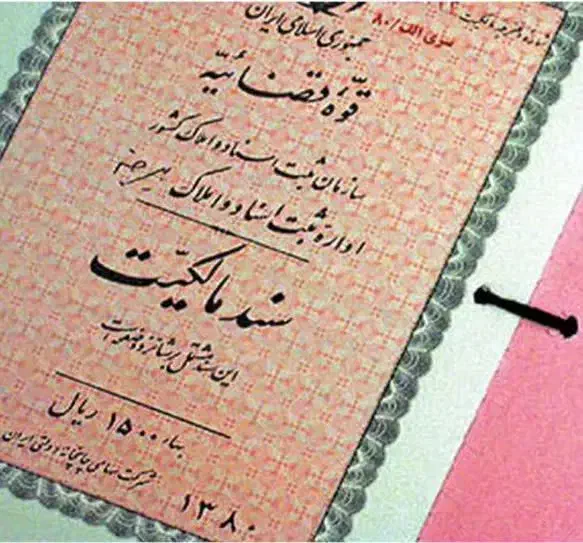 سری الف / ۸۰
جمهوری اسلامی ایران
قوّه قضائیّه
سازمان ثبت اسناد و املاک کشور
اداره ثبت اسناد و املاک
سند مالکیّت
این سند مشتمل بر شانزده صفحه است
بهاء ۱۵۰۰ ریال
شرکت سهامی چاپخانه دولتی ایران
۱۳۸۰